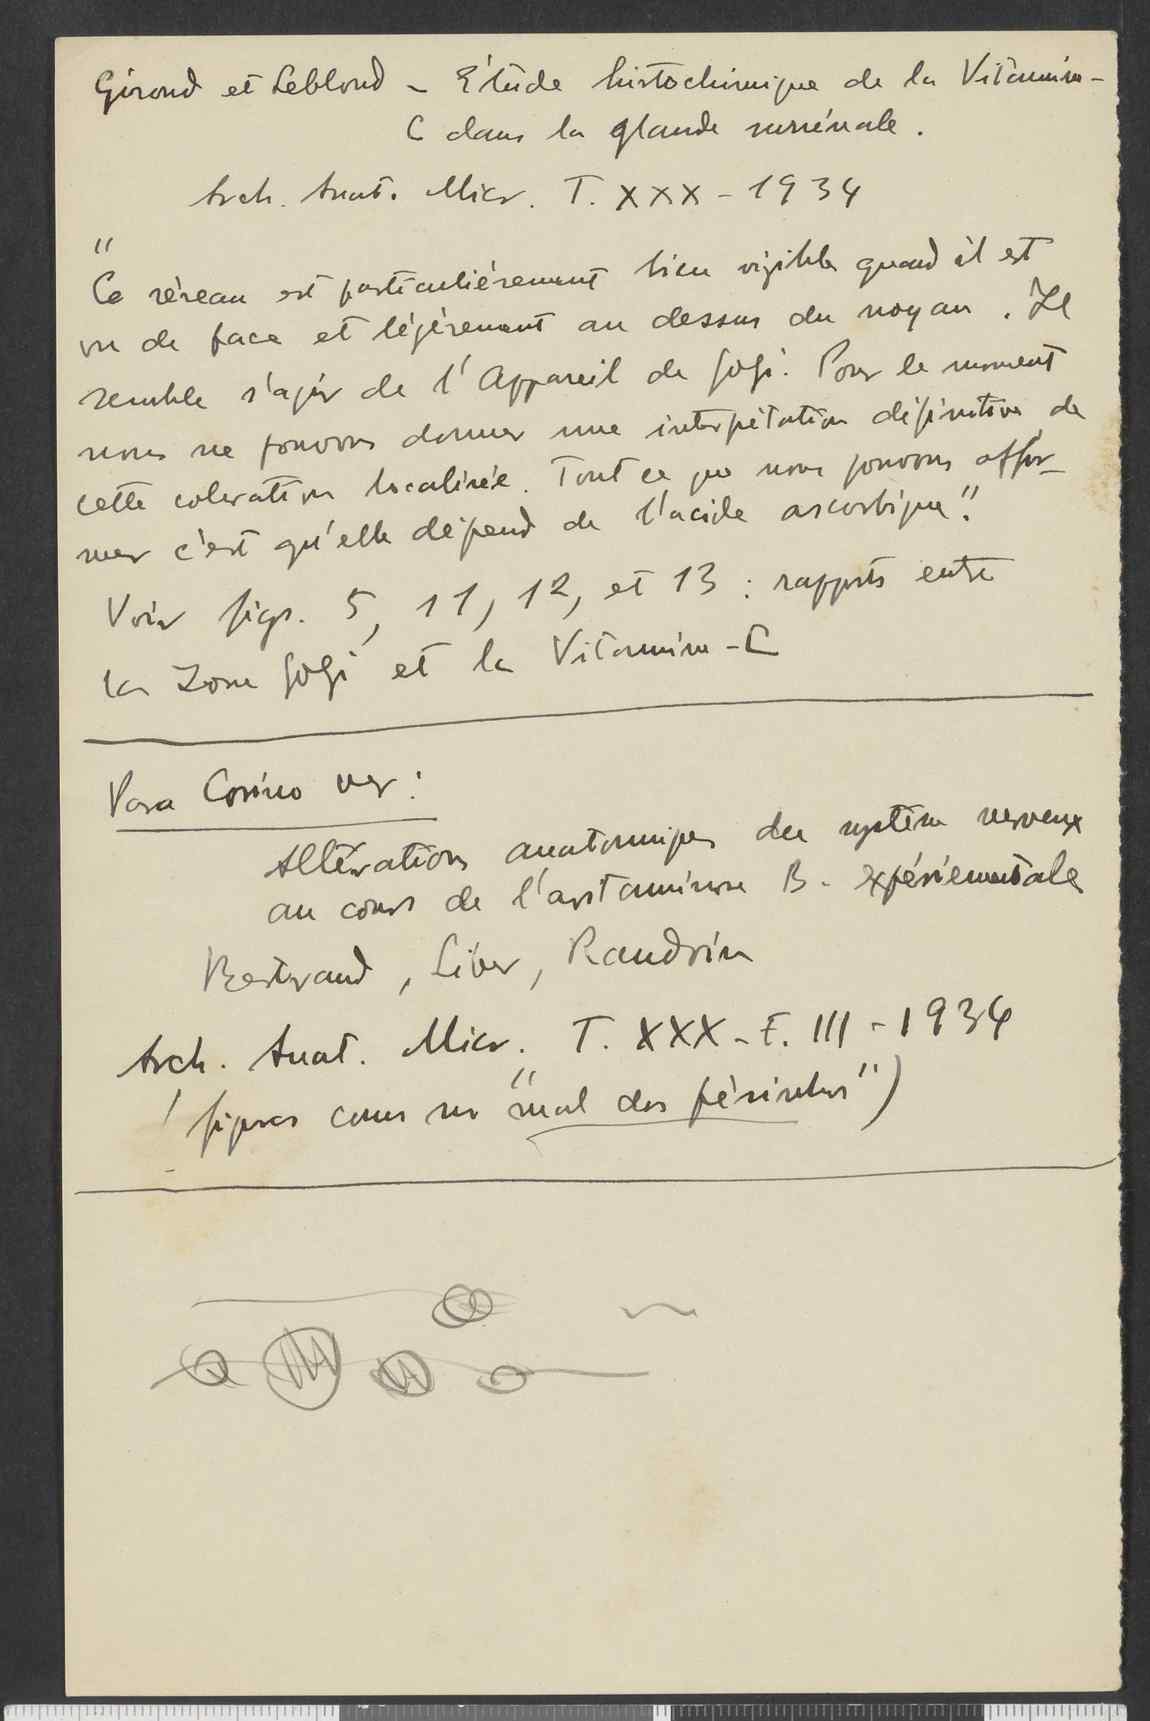 Giroud et Leblond - Étude histochimique de la Vitamine-
C dans la glande surrénale.
Arch. Anat. Micr. T. XXX - 1934
"
Ce réseau est particulièrement bien visible quand il est
vu de face et légèrement au dessus du noyau. Il
semble s'agir de l'Appareil de Golgi. Pour le moment
nous ne pouvons donner une interpétation définitive de
cette coloration localisée. Tout ce que nous pouvons affir-
mer c'est qu'elle dépend de l'acide ascorbique".
Voir figs. 5, 11, 12, et 13 : rapports entre
la Zone Golgi et la Vitamine - C
Para Corino ver:
Altérations anatomiques du système nerveux
au cours de l'avitaminose B. expérimentale
Bertrand, Liber, Randoin
Arch. Anat. Micr. T. XXX - F. III - 1934
(figuras como no "mal dos")